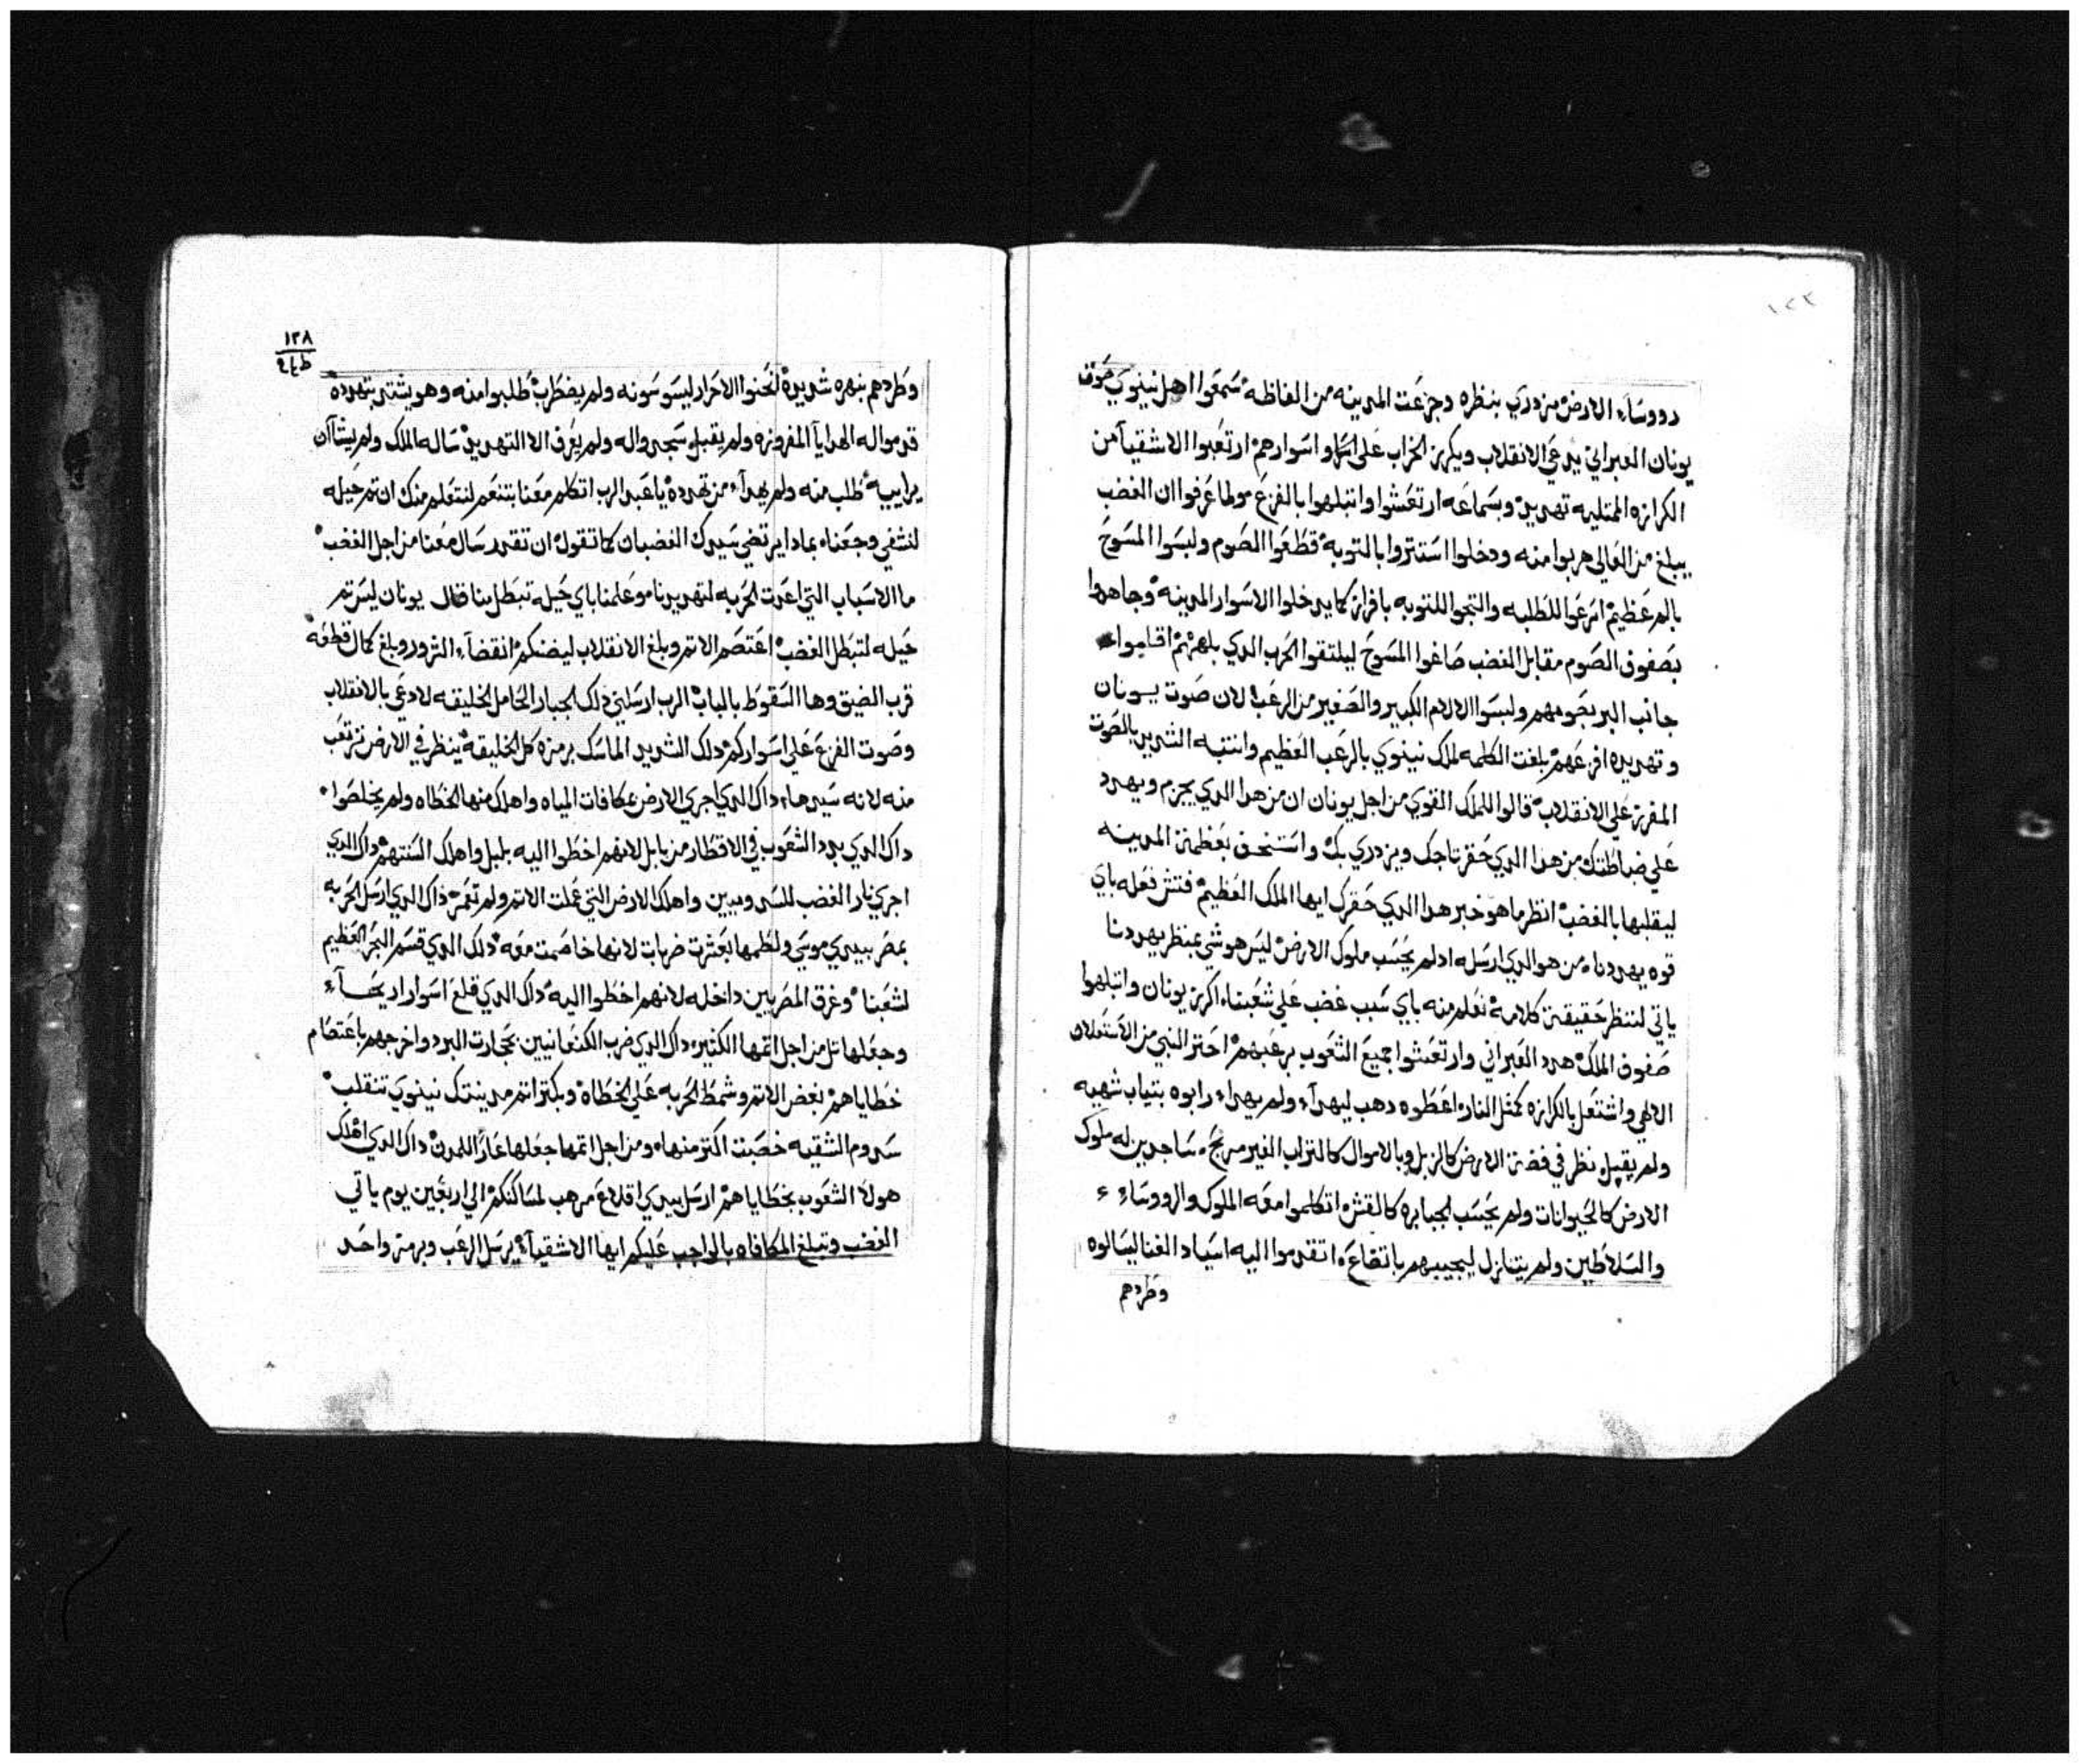 ١٢٣
رووساء الارض مزدري بنظره وجزعت المدينه من الفاظه سمعوا اهل نينوي صوت
يونان العبراني يدعي الانقلاب ويكرز الخراب علي اسها واسوارهم ارتعبوا الاشقيآ من
الكرازه الممتليه تهديد وبسماعه ارتعشوا وانبلهوا بالفزع مولما عرفوا ان الغضب
يبلغ من العالي هربوا منه ودخلوا استتروا بالتوبه قطعوا الصوم ولبسوا المسوح
بالم عظيم اترعوا للطلبه والتجوا للتوبه بافراز كما يدخلوا الاسوار المدينه وجاهدوا
بصفوف الصوم مقابل الغضب صاغوا المسوح ليلتقوا الحرب الدي بلهزتهم اقاموا
جانب البر بصومهم ولبسوا الالام الكبير والصغير من الرعب لان صوت يونان
وتهديده افزعهم بلغت الكلمه لملك نينوي بالرعب العظيم وانتبه الشديد بالصوت
المفزع علي الانقلاب قالوا للملك القوي من اجل يونان ان من هدا الدي يجزم ويهدد
علي ضباطتك من هدا الدي حقر تاجك ويزدري بك واستخف بعظمة المدينه
ليقلبها بالغضب انظر ما هو خبر هدا الدي حقرك ايها الملك العظيم فتش فعله باي
قوه يهددنا من هو الدي ارسله ادلم يحسب ملوك الارض ليس هو شي بمنظر يهددنا
ياتي لننظر حقيقة كلامه نعلم منه باي سبب غضب علي شعبنا اكرز يونان وانبلهوا
صفوف الملك هدد العبراني وارتعشوا جميع الشعوب برعبهم احتر النبي من الاستعلان
الالهي واشتعل بالكرازه كمثل النار اعطوه دهب ليهدآ ولم يهدا رابوه بتياب شهيه
ولم يقبل نظر في فضة الارض كالزبل وبالاموال كالتراب الغير مربح ساجدين له ملوك
الارض كالحيوانات ولم يحسب الجبابره كالقش اتكلموا معه الملوك والرووساء
والسلاطين ولم يتنازل ليجيبهم باتضاع اتقدموا اليه اسياد الغنا ليسالوه
وطردهم
١٢٨
وطردهم بنهره شديده انحنوا الاحرار ليسوسونه ولم يضطرب طلبوا منه وهو يشتد بتهدده
قدموا له الهدايا المفروزه ولم يقبل سجدوا له ولم يعرف الا التهديد ساله الملك ولم يشآ ان
يراييه طلب منه ولم يهدآ من تهدده يا عبد الرب اتكلم معنا بتنعم لنتعلم منك ان تم حيله
لنشفي وجعنا بمادا يرتضي سيدك الغضبان كما تقول ان تقدر سال معنا من اجل الغضب
ما الاسباب التي اعدت الحربه لتهديدنا وعلمنا باي حيله تبطل منا قال يونان ليس تم
حيله لتبطل الغضب اعتصم الاتم وبلغ الانقلاب ليضنكم انقضآ الشرور وبلغ كمال قطعه
قرب الضيق وها السقوط بالباب الرب ارسلني دلك الجبار الحامل الخليقه لادعي بالانقلاب
وصوت الفزع علي اسواركم دلك الشديد الماسك برمزه كل الخليقه ينظر في الارض ترتعب
منه لانه سيدها داك الدي اجري الارض عكافات المياه واهلك منها الخطاه ولم يخلصوا
داك الدي بدد الشعوب في الاقطار من بابل لانهم اخطوا اليه بلبل واهلك السنتهم داك الدي
اجري نار الغضب للسدوميين واهلك الارض التي عملت الاتم ولم تعمر داك الدي ارسل الحربه
بمصر بيدي موسي ولطمها بعشرت ضربات لانها خاصمت معه دلك الدي قسم البحر العظيم
لشعبنا وغرق المصريين داخله لانهم اخطوا اليه داك الدي قلع اسوار اريحآ
وجعلها تل من اجل اتمها الكثير داك الدي ضرب الكنعانيين بحجارت البرد واخرجهم باعتصام
خطاياهم بغض الاتم وشمط الحربه علي الخطاه وبكترا تم مدينتك نينوي تنقلب
سدوم الشقيه خصبت اكتر منها ومن اجل اتمها جعلها عارا للمدن داك الدي اهلك
هولا الشعوب بخطاياهم ارسل بيدي اقلاع مرهب لمساكنكم الي اربعين يوم ياتي
الغضب وتبلغ المكافاه بالواجب عليكم ايها الاشقيآ يرسل الرعب وبرمز واحد